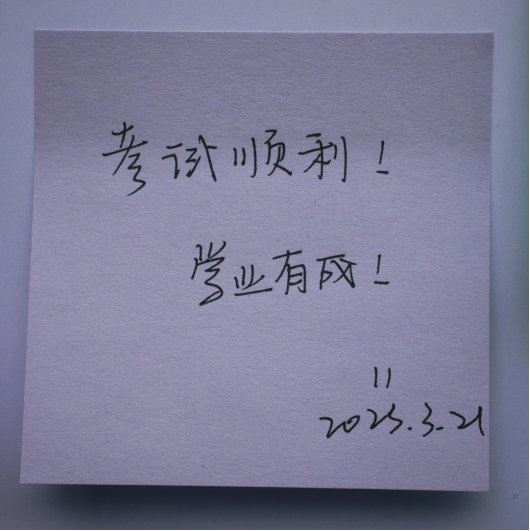 考试顺利！
学业有成！
11
2025.3.21